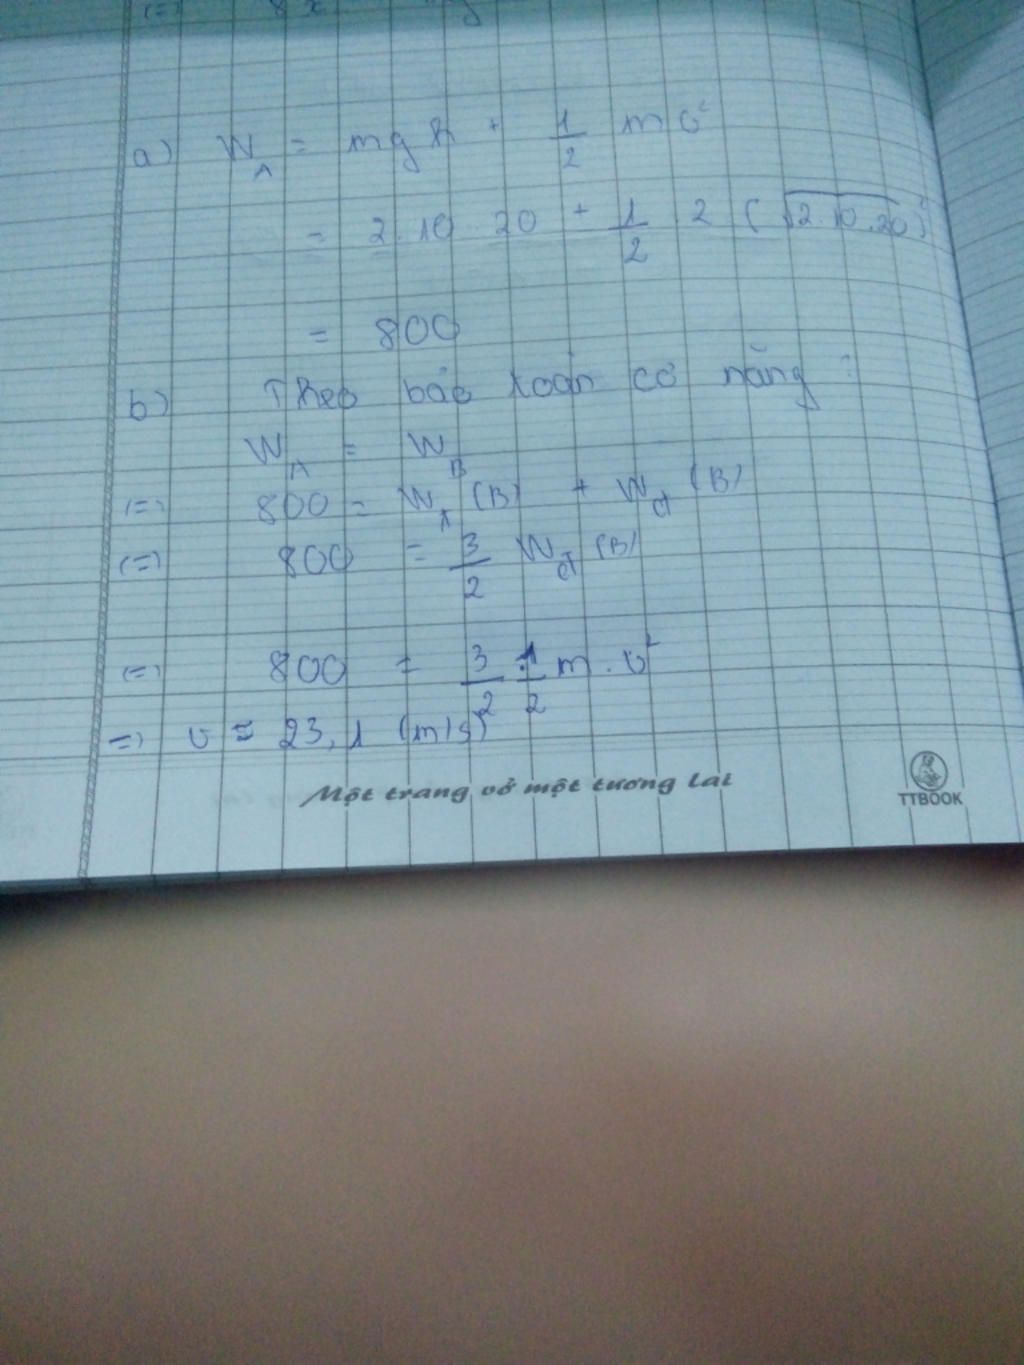 a) W_A = mgh + 1/2 mv²
= 2.10.20 + 1/2 2 (√2.10.20)²
= 800
b) Theo bảo toàn cơ năng :
W_A = W_B
(=) 800 = W_t (B) + W_đ (B)
(=) 800 = 3/2 W_đ (B)
(=) 800 = 3/2 . 1/2 m . v²
=) v ≈ 23,1 (m/s)
Một trang vở một tương lai
TTBOOK